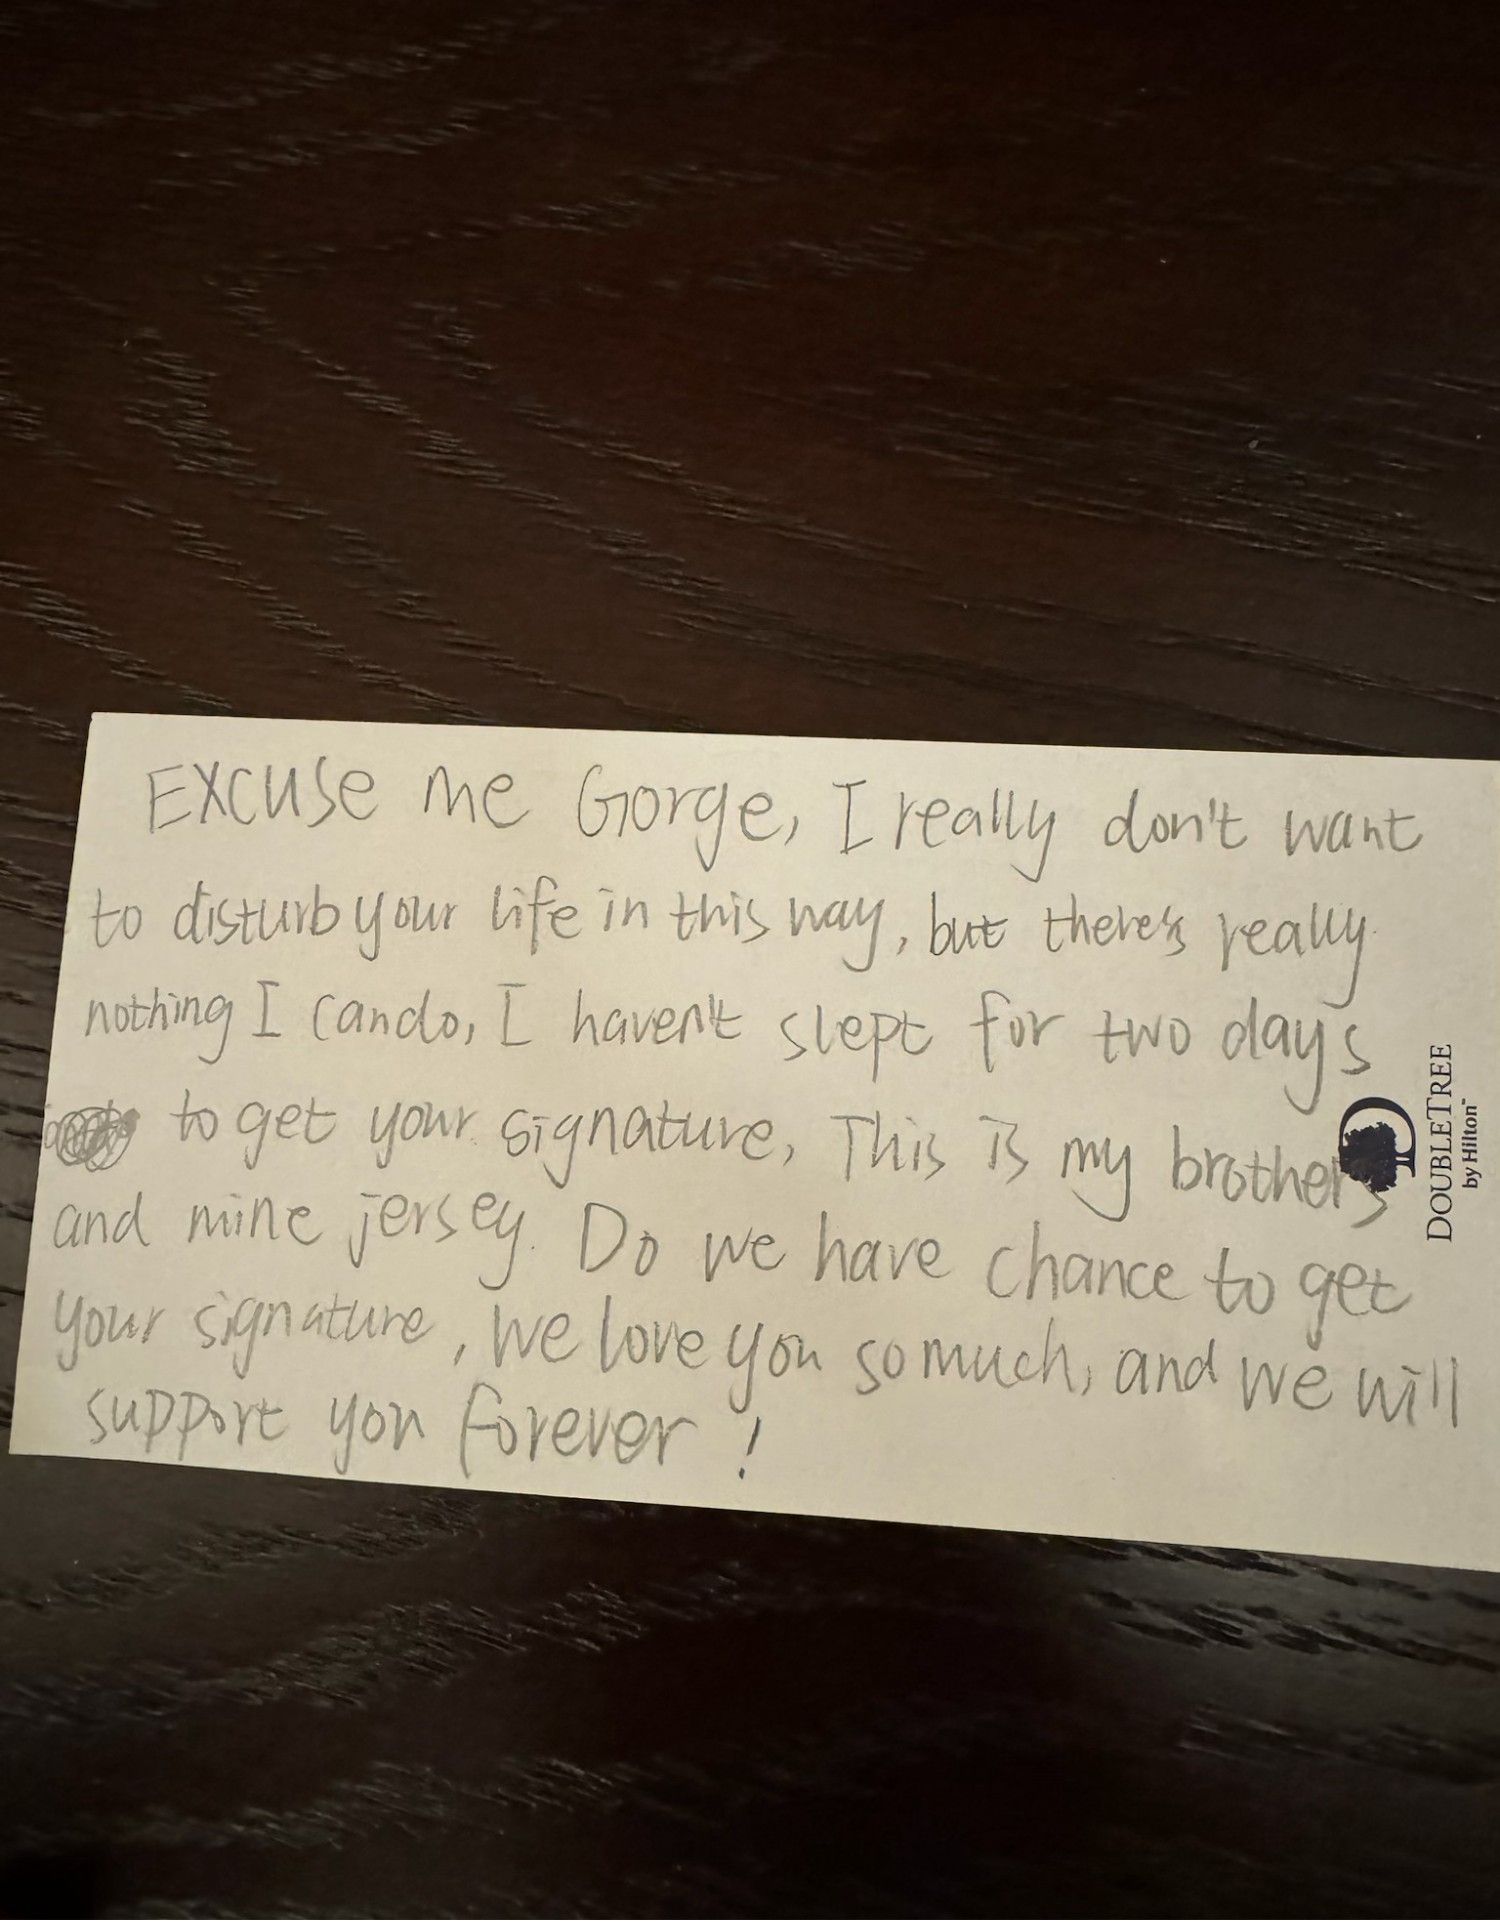 Excuse me Gorge, I really don't want
to disturb your life in this way, but there's really
nothing I can do, I haven't slept for two days
to get your signature, This is my brother's
and mine jersey. Do we have chance to get
your signature, We love you so much, and we will
support you forever!
DOUBLETREE
by Hilton™